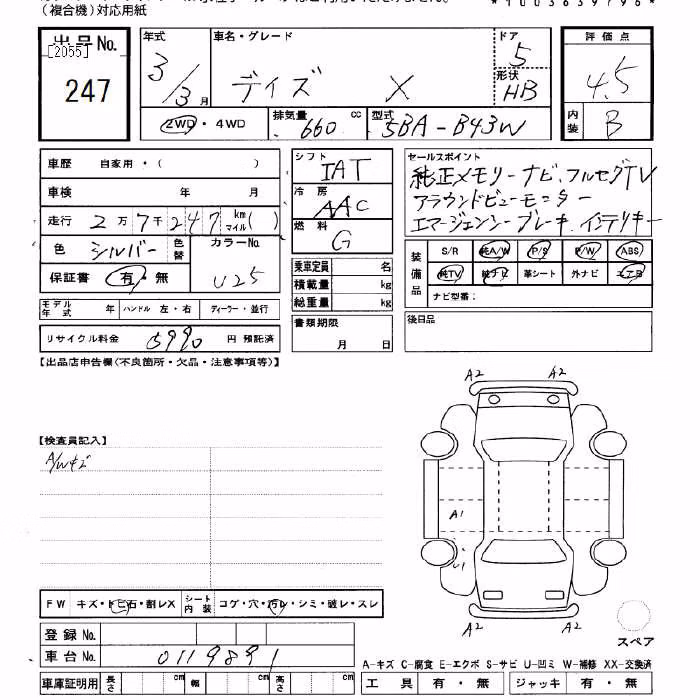 （複合機）対応用紙
*1003639796*
出品No. 年式 車名・グレード ドア 評価点
[2055]
247 3/3月 デイズ X 5 4.5
形状 HB
2WD・4WD 排気量 660 cc 型式 5BA-B43W 内装 B
車歴 自家用・( )
車検 年 月
走行 2万7千247 km マイル( )
色 シルバー 色替 カラーNo. U25
保証書 有・無
モデル年式 年 ハンドル 左・右 ディーラー・並行
リサイクル料金 6990 円 預託済
シフト IAT
冷房 AAC
燃料 G
乗車定員 名
積載量 kg
総重量 kg
書類期限
月 日
セールスポイント
純正メモリーナビ.フルセグTV
アラウンドビューモニター
エマージェンシーブレーキ.インテリキー
装備品 S/R 純A/W P/S P/W ABS
純TV 純ナビ 革シート 外ナビ エアB
ナビ型番：
後日品
【出品店申告欄(不良箇所・欠品・注意事項等)】
【検査員記入】
A/Wキズ
A2 A2
A1
U1
A2 A2
スペア
FW キズ・トビ石・割レX シート内装 コゲ・穴・汚レ・シミ・破レ・スレ
登録No.
車台No. 0119891
車庫証明用 長さ cm 幅 cm 高さ cm
A-キズ C-腐食 E-エクボ S-サビ U-凹ミ W-補修 XX-交換済
工具 有・無 ジャッキ 有・無